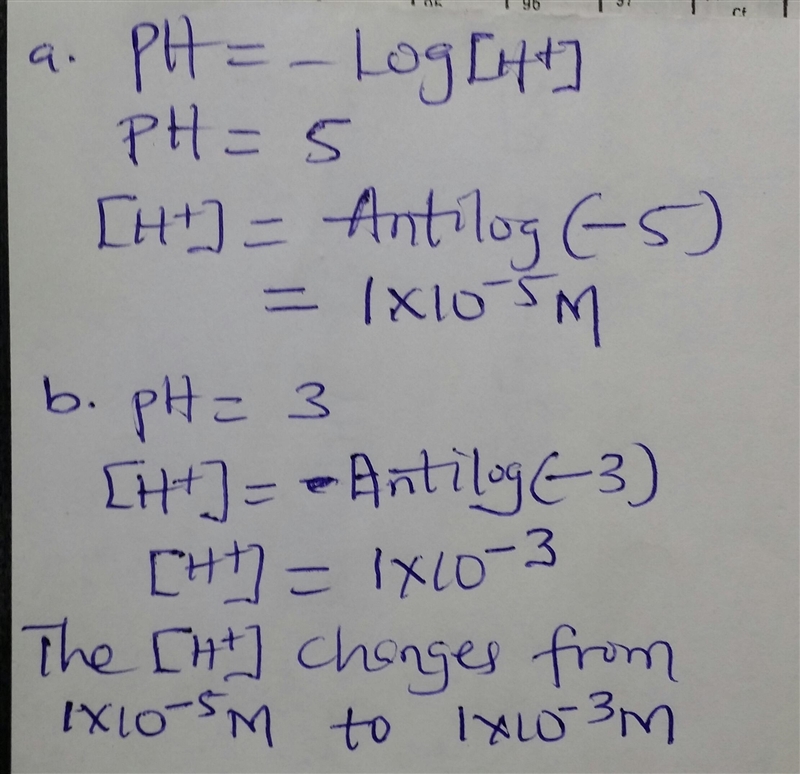 96 97
Cf
a. PH = - Log [H+]
PH = 5
[H+] = Antilog (-5)
= 1×10⁻⁵ M
b. pH = 3
[H+] = -Antilog (-3)
[H+] = 1×10⁻³
The [H+] changes from
1×10⁻⁵ M to 1×10⁻³ M